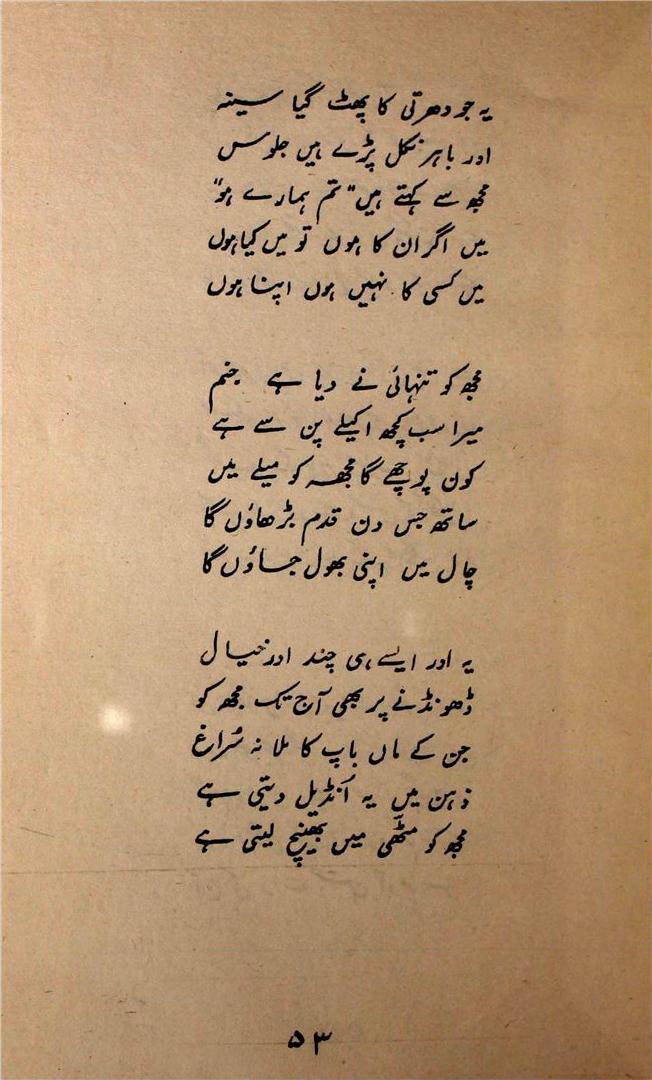 یہ جو دھرتی کا پھٹ گیا سینہ
اور باہر نکل پڑے ہیں جلوس
مجھ سے کہتے ہیں "تم ہمارے ہو"
میں اگر ان کا ہوں تو میں کیا ہوں
میں کسی کا نہیں ہوں اپنا ہوں
مجھ کو تنہائی نے دیا ہے جنم
میرا سب کچھ اکیلے پن سے ہے
کون پوچھے گا مجھ کو میلے میں
ساتھ جس دن قدم بڑھاؤں گا
چال میں اپنی بھول جاؤں گا
یہ اور ایسے ہی چند اور خیال
ڈھونڈنے پر بھی آج تک مجھ کو
جن کے ماں باپ کا ملا نہ سُراغ
ذہن میں یہ اُنڈیل دیتی ہے
مجھ کو مٹّھی میں بھینچ لیتی ہے
۵۳